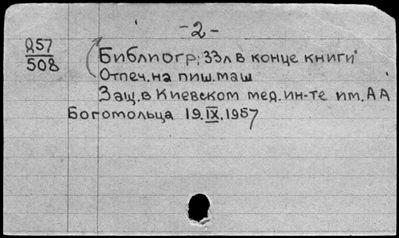 -2-
Д57
508
Библиогр; 33л в конце книги
Отпеч. на пиш. маш
Защ. в Киевском мед. ин-те им. А А
Богомольца 19.IX.1957